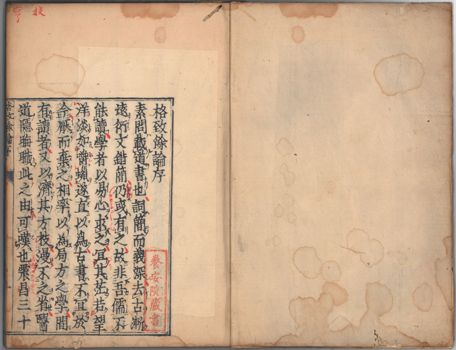 格致餘論序
素問載道書也詞簡而義深去古漸
遠衍文錯簡仍或有之故非吾儒不
能讀學者以易心求之宜其茫若望
洋淡如嚼蠟遂直以為古書不宜於
今厭而棄之相率以為局方之學間
有讀者又以濟其方技漫不之省醫
道隱晦職此之由可嘆也震昌三十
養安院藏書